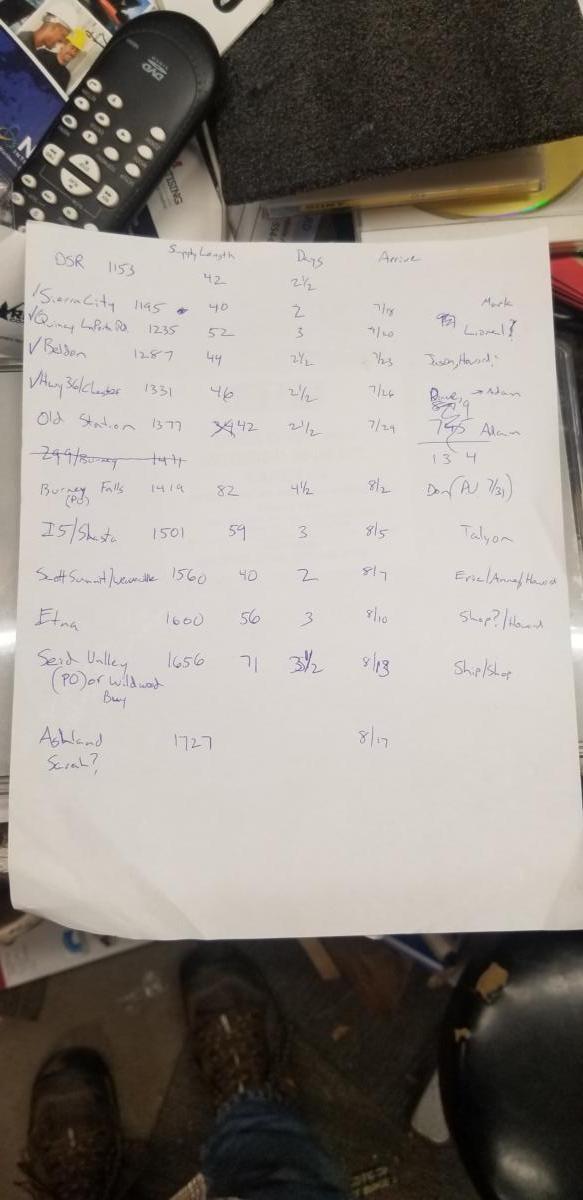 DVD
DSR 1153 Supply Length Days Arrive
42 2½
✓Sierra City 1195 40 2 7/18 Mark
✓Quincy LaPorte Rd. 1235 52 3 7/20 Lionel?
✓Belden 1287 44 2½ 7/23 Jason, Howard,
✓Hwy 36/Chester 1331 46 2½ 7/26 Dave, → Adam
Old Station 1377 42 2½ 7/29 Adam
299/Burney 1411 13 4
Burney Falls 1419 82 4½ 8/2 Don (PU 7/31)
(PO)
I5/Shasta 1501 59 3 8/5 Talyon
Scott Summit/ 1560 40 2 8/7 Eric/Anne/Howard
Etna 1600 56 3 8/10 Shop?/Howard
Seid Valley 1656 71 3½ 8/13 Ship/Shop
(PO) or Wildwood
Ashland 1727 8/17
Sarah?